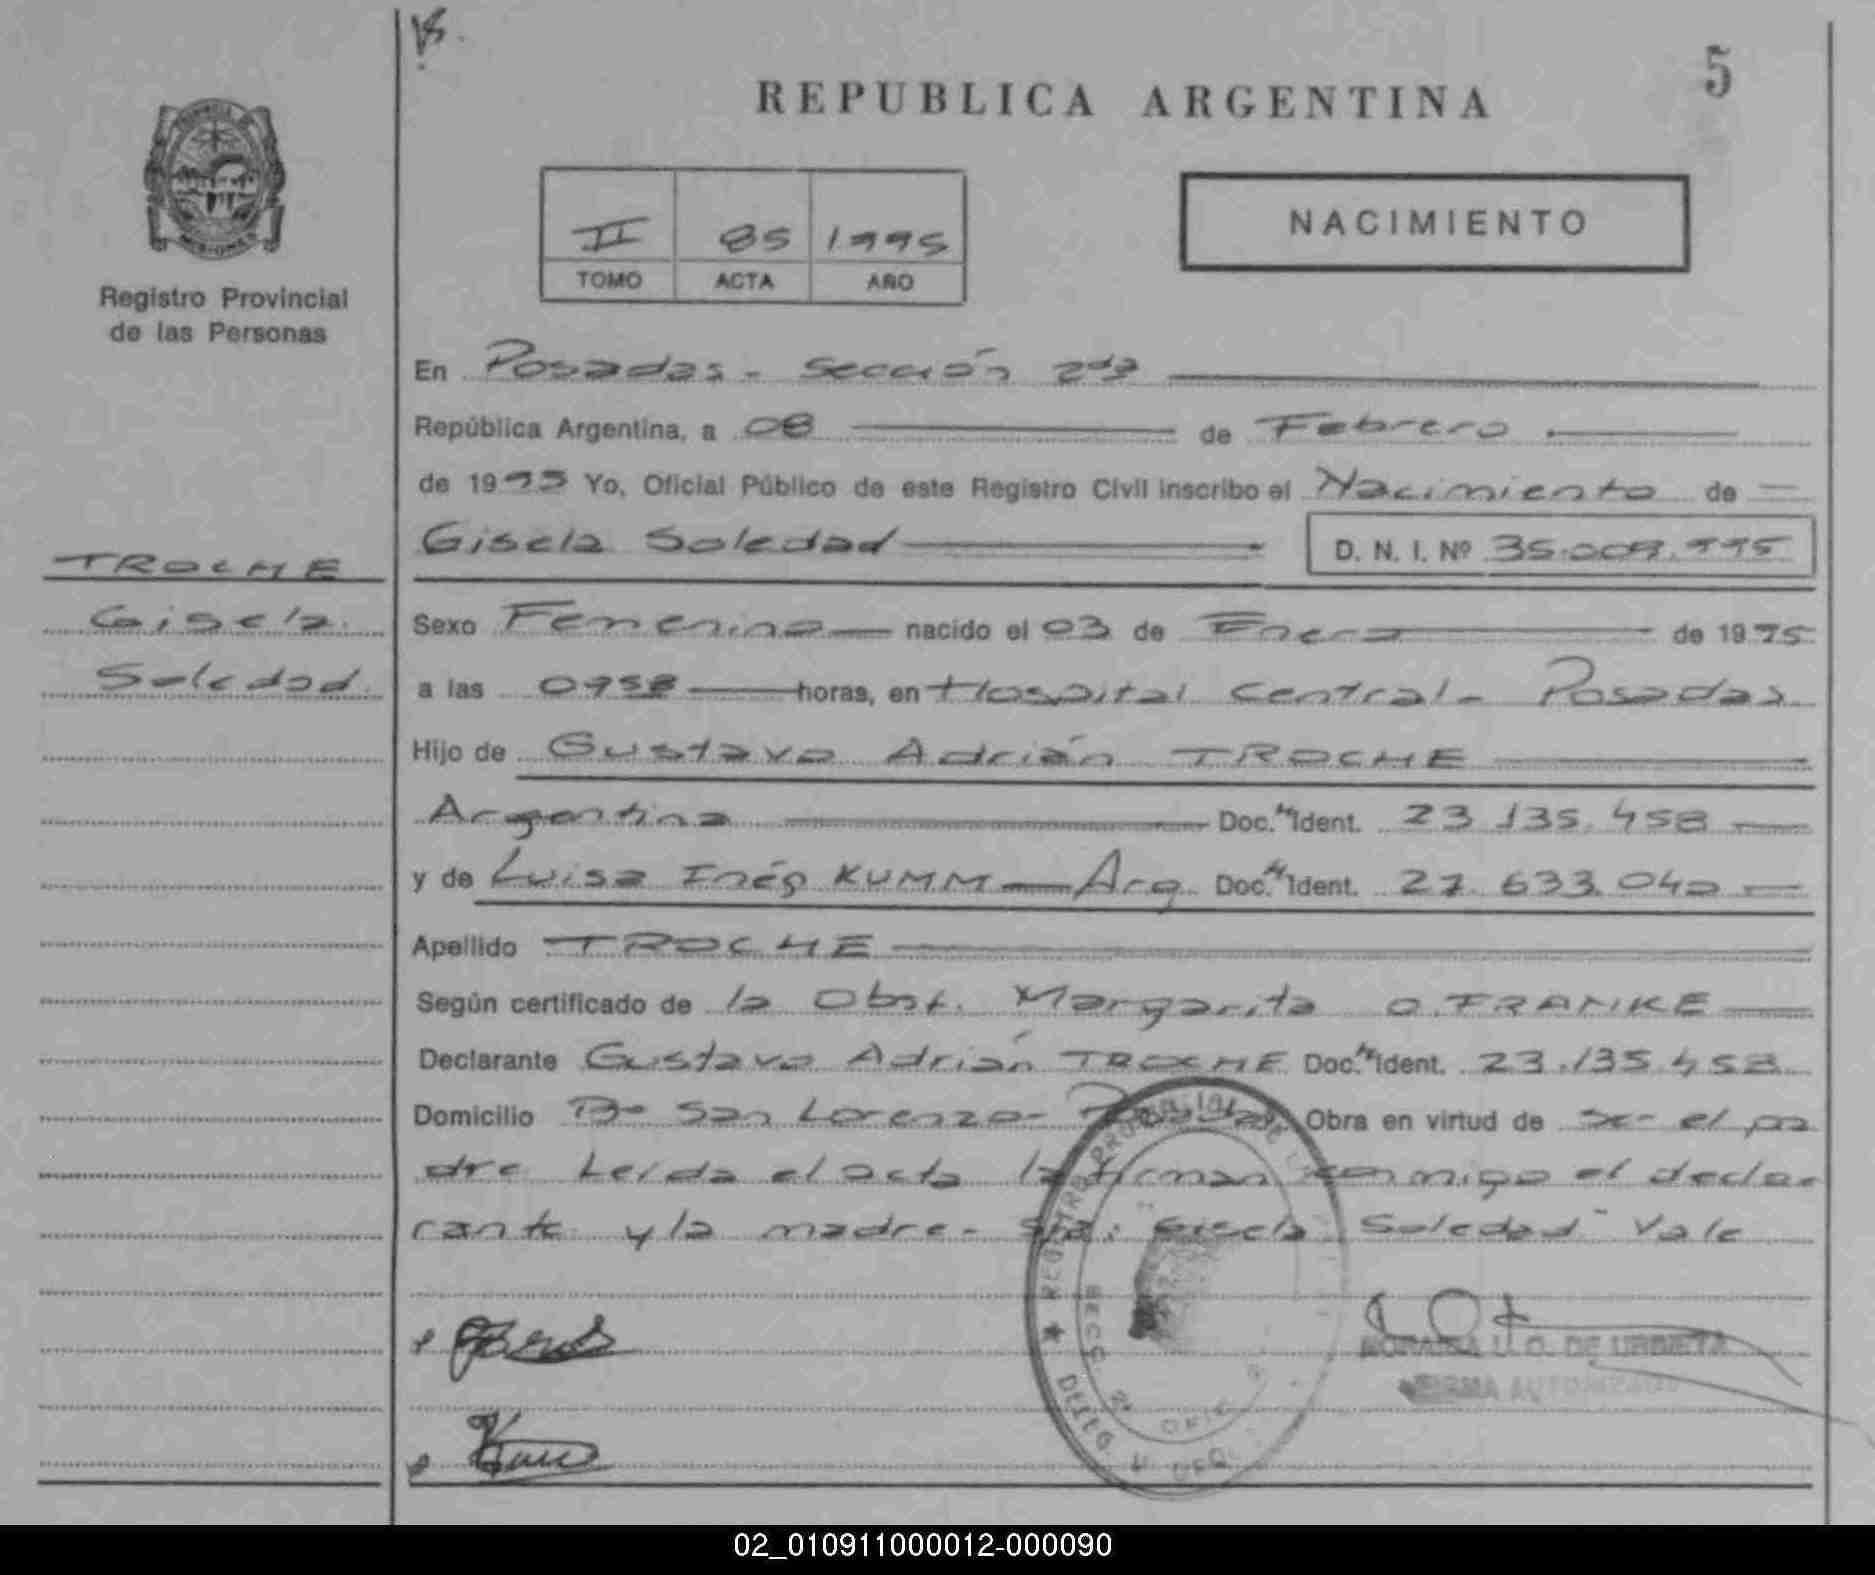 5
REPUBLICA ARGENTINA
II 85 1995
TOMO ACTA AÑO
NACIMIENTO
MISIONES
Registro Provincial
de las Personas
En Posadas - Sección 2da
República Argentina, a 08 de Febrero
de 1995 Yo, Oficial Público de este Registro Civil inscribo el Nacimiento de
Gisela Soledad D. N. I. Nº 35.009.995
TROCHE
Gisela
Soledad
Sexo Femenino nacido el 03 de Enero de 1995
a las 0958 horas, en Hospital Central - Posadas
Hijo de Gustavo Adrián TROCHE
Argentina Doc. Ident. 23.135.458
y de Luisa Inés KUMM Arg. Doc. Ident. 27.633.042
Apellido TROCHE
Según certificado de la Obst. Margarita O. FRANKE
Declarante Gustavo Adrián TROCHE Doc. Ident. 23.135.458
Domicilio Bº San Lorenzo - Posadas Obra en virtud de ser el pa
dre Leída el acta la firman conmigo el decla-
rante y la madre - Gisela Soledad Vale
U. O. DE URBIETA
FIRMA AUTORIZADA
REGISTRO PROVINCIAL DE
SECC 2ª OFIC
DELEG
02_010911000012-000090